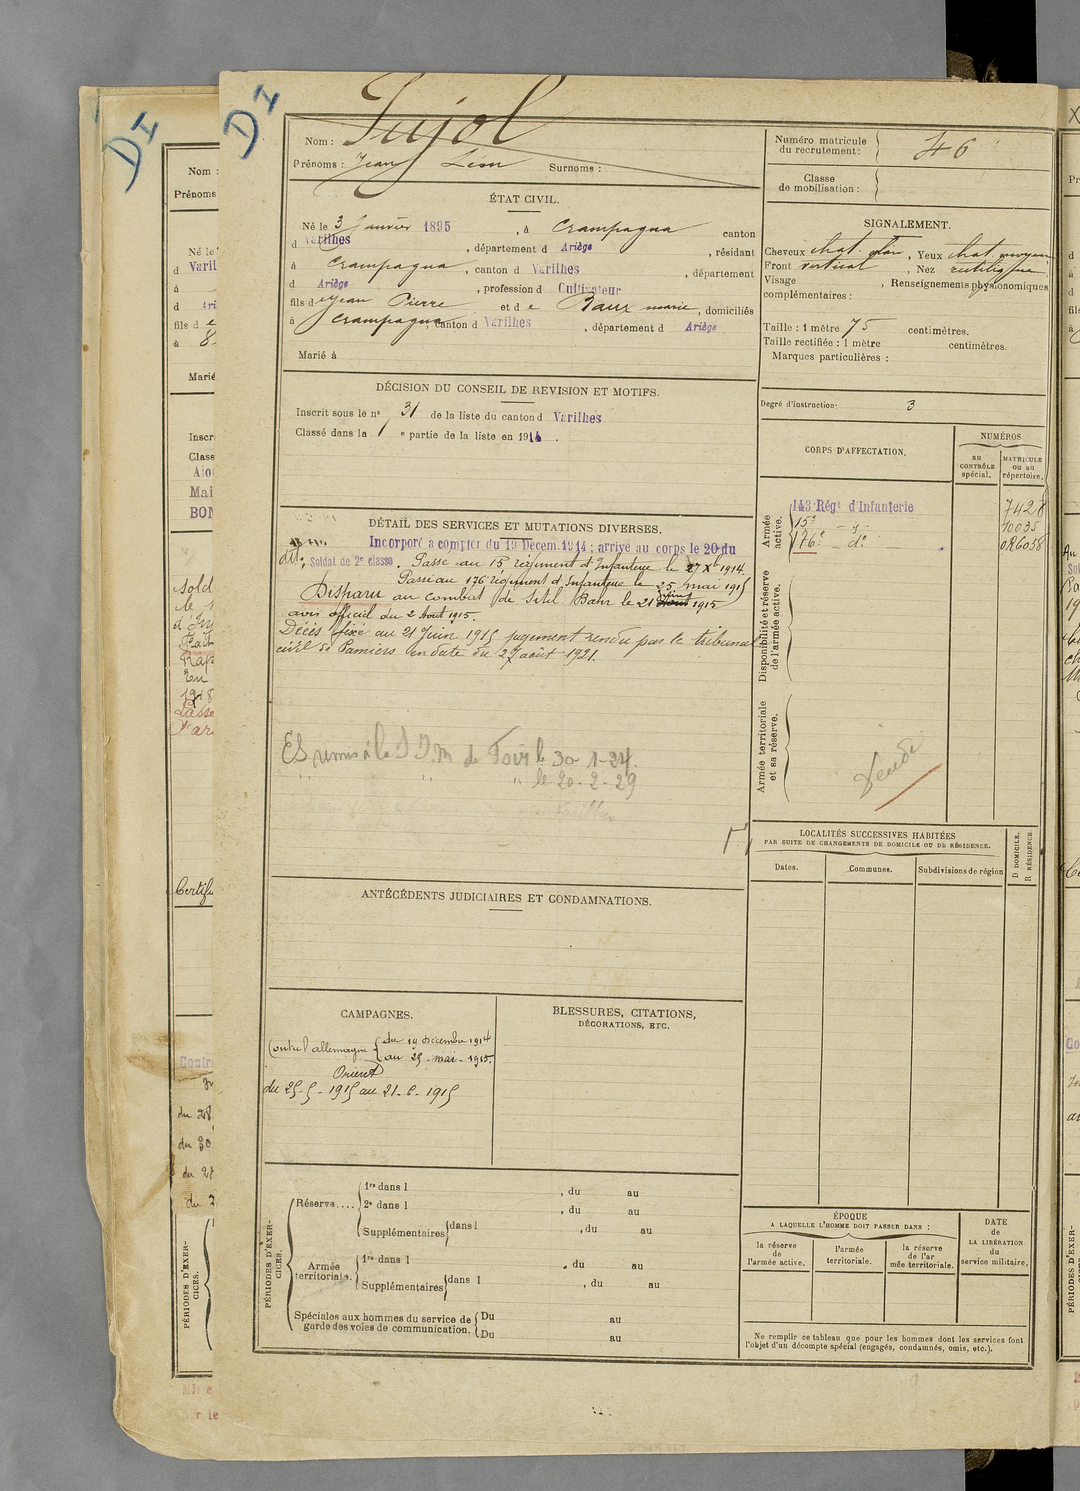 DI
DI
Nom :
Prénoms
Né le
d Varil
à
d Ari
fils d
à
Marié
Inscr
Class
Ajo
Mai
BON
Sold
Certifi
Contre
du 28.
du 30.
PÉRIODES D'EXER-
CICES.
Nom : Pujol
Prénoms : Jean Léon Surnoms :
Numéro matricule
du recrutement : 46
Classe
de mobilisation :
ÉTAT CIVIL.
Né le 3 Janvier 1895, à Crampagna canton
d Varilhes, département d Ariège, résidant
à Crampagna, canton d Varilhes, département
d Ariège, profession d Cultivateur
fils de Jean Pierre et de Baux marie, domiciliés
à Crampagna, canton d Varilhes, département d Ariège
Marié à
SIGNALEMENT.
Cheveux chat. clair, Yeux chat. moyen
Front vertical, Nez rectiligne
Visage , Renseignements physionomiques
complémentaires :
Taille : 1 mètre 75 centimètres.
Taille rectifiée : 1 mètre centimètres.
Marques particulières :
Degré d'instruction : 3
DÉCISION DU CONSEIL DE REVISION ET MOTIFS.
Inscrit sous le nº 31 de la liste du canton d Varilhes
Classé dans la 1e partie de la liste en 1914.
CORPS D'AFFECTATION.
NUMÉROS
au
CONTRÔLE
spécial.
MATRICULE
ou au
répertoire.
Armée
active.
143e Régt d'Infanterie 7428
15e - d° 10035
176e - d°
Disponibilité et réserve
de l'armée active.
Armée territoriale
et sa réserve.
DÉTAIL DES SERVICES ET MUTATIONS DIVERSES.
Incorporé à compter du 19 Décem. 1914 ; arrivé au corps le 20 du
dit; Soldat de 2e classe. Passé au 15 régiment d'Infanterie le 27 Xbre 1914.
Passé au 176 régiment d'Infanterie le 25 mai 1915
Disparu au combat de Sitil Bahr le 21 juin 1915
avis officiel du 2 Aout 1915.
Décès fixé au 21 Juin 1915 jugement rendu par le tribunal
civil de Pamiers en date du 27 août 1921.
ES remis à la S D.M de Foix le 30-1-24.
" " " le 20-2-29
LOCALITÉS SUCCESSIVES HABITÉES
PAR SUITE DE CHANGEMENTS DE DOMICILE OU DE RÉSIDENCE.
Dates.
Communes.
Subdivisions de région
D DOMICILE.
R RÉSIDENCE.
ANTÉCÉDENTS JUDICIAIRES ET CONDAMNATIONS.
CAMPAGNES.
Contre l'allemagne du 19 décembre 1914
au 25 mai 1915.
Orient
du 25-5-1915 au 21-6-1915
BLESSURES, CITATIONS,
DÉCORATIONS, ETC.
PÉRIODES D'EXER-
CICES.
Réserve.... 1re dans l , du au
2e dans l , du au
Supplémentaires dans l , du au
Armée
territoriale. 1re dans l , du au
Supplémentaires dans l , du au
Spéciales aux hommes du service de
garde des voies de communication. Du au
Du au
ÉPOQUE
A LAQUELLE L'HOMME DOIT PASSER DANS :
la réserve
de
l'armée active.
l'armée
territoriale.
la réserve
de l'ar
mée territoriale.
DATE
de
LA LIBÉRATION
du
service militaire.
Ne remplir ce tableau que pour les hommes dont les services font
l'objet d'un décompte spécial (engagés, condamnés, omis, etc.).